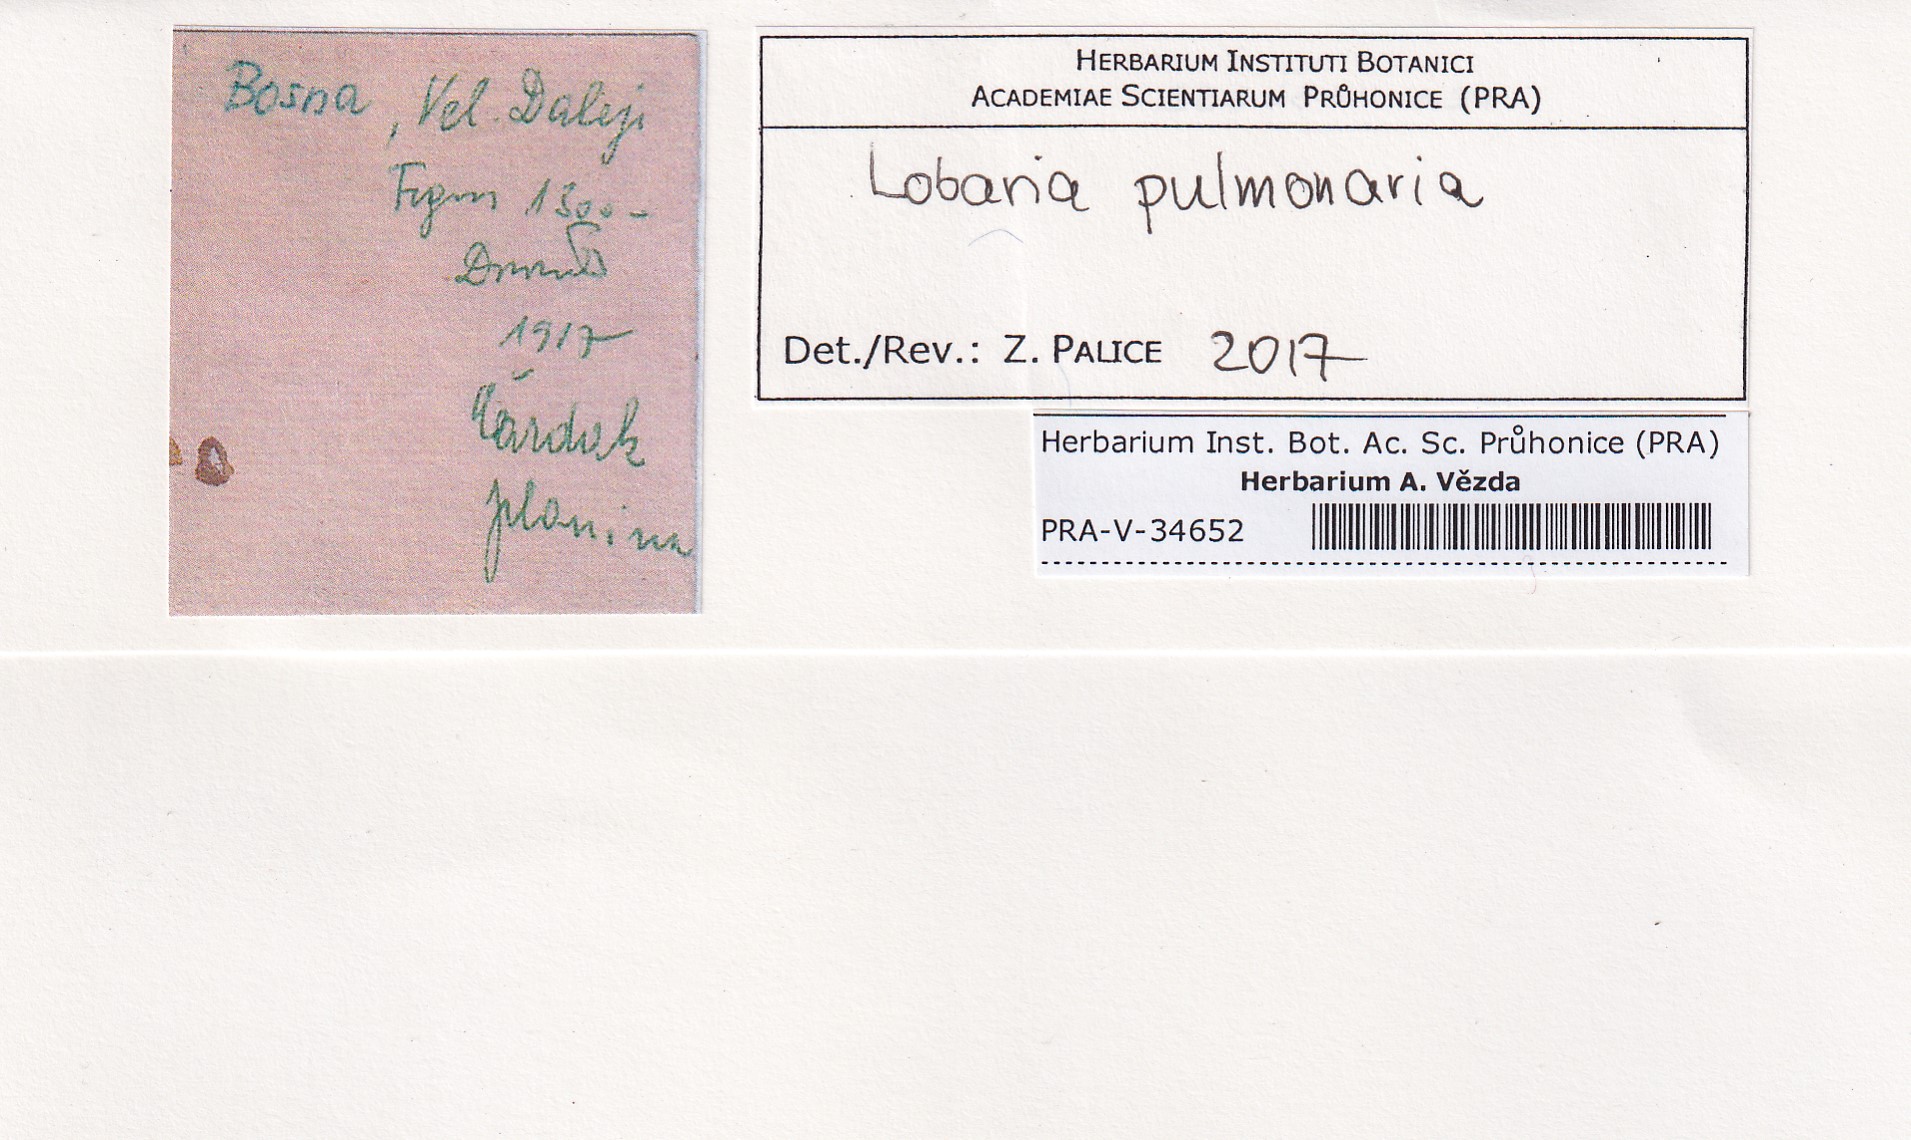 Bosna, Vel. Daleji
1300 -
1917
Čardak
planina
HERBARIUM INSTITUTI BOTANICI
ACADEMIAE SCIENTIARUM PRŮHONICE (PRA)
Lobaria pulmonaria
Det./Rev.: Z. PALICE 2017
Herbarium Inst. Bot. Ac. Sc. Průhonice (PRA)
Herbarium A. Vězda
PRA-V-34652